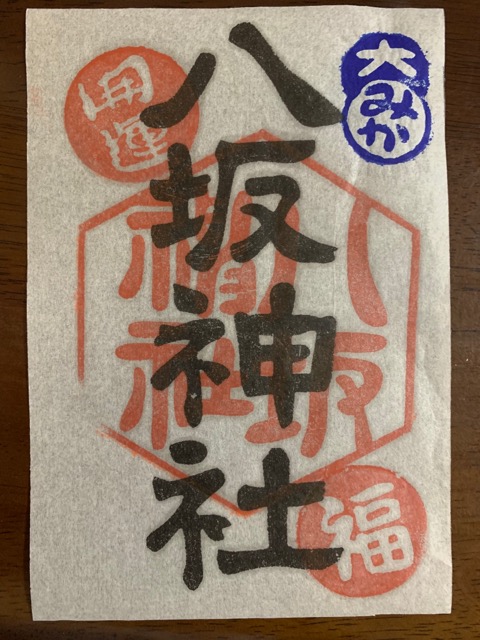 大
みか
八坂神社
八坂
神社
福